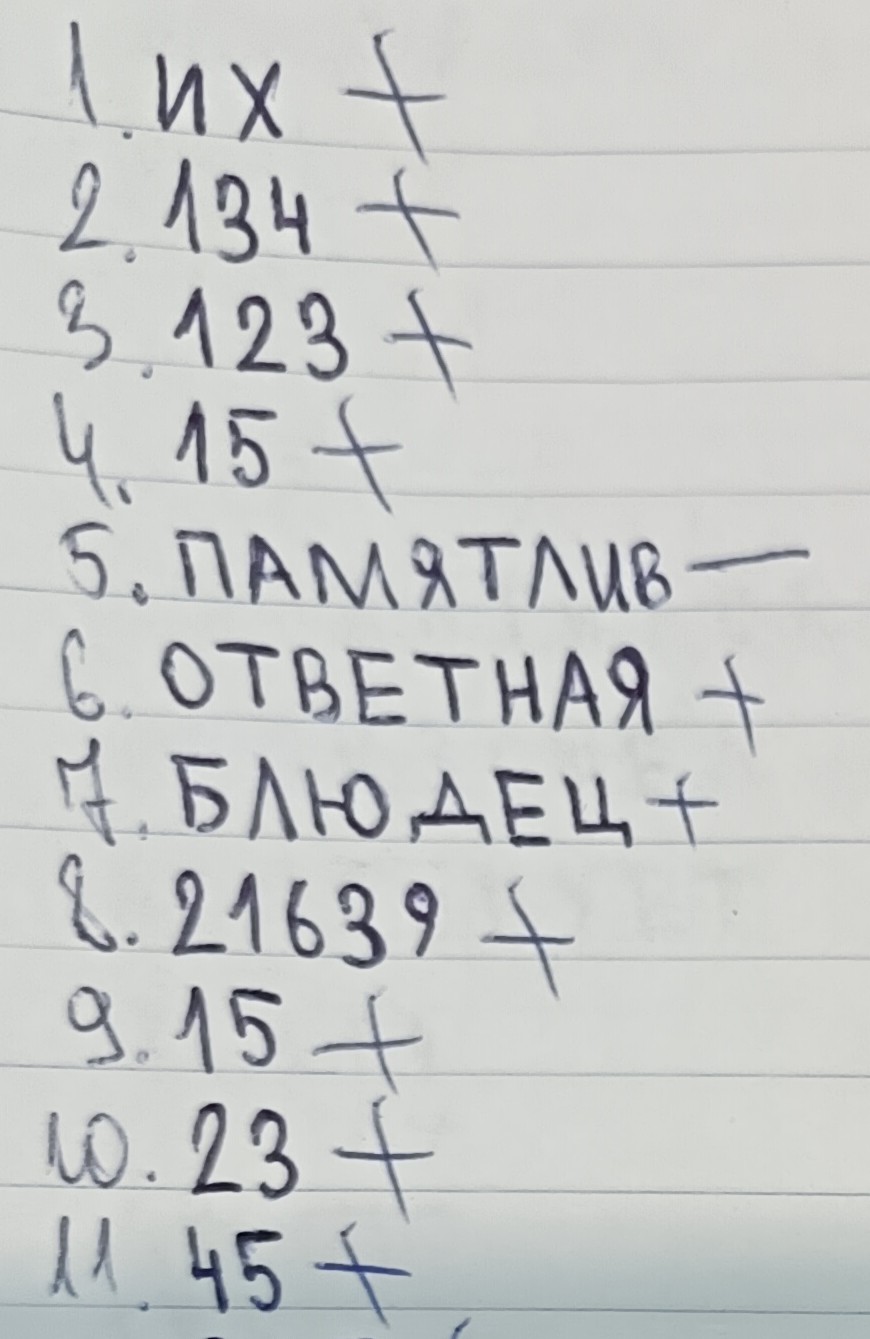 1. ИХ +
2. 134 +
3. 123 +
4. 15 +
5. ПАМЯТЛИВ —
6. ОТВЕТНАЯ +
7. БЛЮДЕЦ +
8. 21639 +
9. 15 +
10. 23 +
11. 45 +